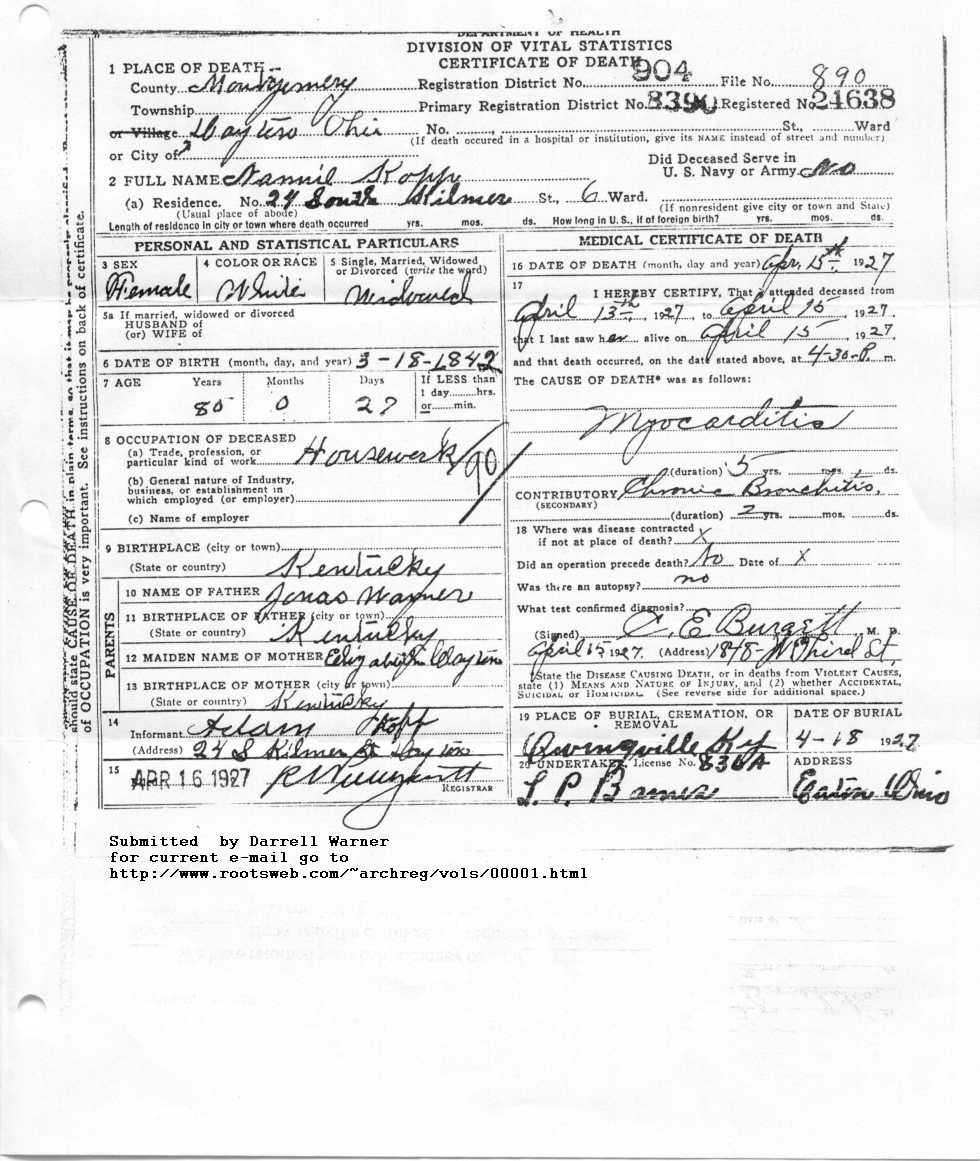 DEPARTMENT OF HEALTH
DIVISION OF VITAL STATISTICS
CERTIFICATE OF DEATH
1 PLACE OF DEATH
County Montgomery
Registration District No. 904 File No. 890
Township
Primary Registration District No. Registered No. 24638
or Village Dayton Ohio No. , St., Ward
(If death occured in a hospital or institution, give its NAME instead of street and number)
or City of
Did Deceased Serve in
U. S. Navy or Army No
2 FULL NAME Nannie Kopp
(a) Residence. No. 24 South Kilmer St., 6 Ward.
(Usual place of abode) (If nonresident give city or town and State)
Length of residence in city or town where death occurred yrs. mos. ds. How long in U. S., if of foreign birth? yrs. mos. ds.
should state CAUSE OF DEATH in plain terms, so that it may be properly classified.
of OCCUPATION is very important. See instructions on back of certificate.
PERSONAL AND STATISTICAL PARTICULARS
3 SEX
Female
4 COLOR OR RACE
White
5 Single, Married, Widowed
or Divorced (write the word)
Widowed
5a If married, widowed or divorced
HUSBAND of
(or) WIFE of
6 DATE OF BIRTH (month, day, and year) 3-18-1842
7 AGE Years Months Days
80 0 27
If LESS than
1 day hrs.
or min.
8 OCCUPATION OF DECEASED
(a) Trade, profession, or
particular kind of work Housework 90
(b) General nature of Industry,
business, or establishment in
which employed (or employer)
(c) Name of employer
9 BIRTHPLACE (city or town)
(State or country) Kentucky
PARENTS
10 NAME OF FATHER Jonas Warner
11 BIRTHPLACE OF FATHER (city or town)
(State or country) Kentucky
12 MAIDEN NAME OF MOTHER Elizabeth Clayton
13 BIRTHPLACE OF MOTHER (city or town)
(State or country) Kentucky
14
Informant Adam Kopp
(Address) 24 S Kilmer St Dayton
15 APR 16 1927
REGISTRAR
MEDICAL CERTIFICATE OF DEATH
16 DATE OF DEATH (month, day and year) Apr, 15th, 1927
17 I HEREBY CERTIFY, That I attended deceased from
April 13th, 1927, to April 15, 1927,
that I last saw her alive on April 15, 1927,
and that death occurred, on the date stated above, at 4-30-P m.
The CAUSE OF DEATH* was as follows:
Myocarditis
(duration) 5 yrs. mos. ds.
CONTRIBUTORY Chronic Bronchitis,
(SECONDARY)
(duration) 2 yrs. mos. ds.
18 Where was disease contracted
if not at place of death? X
Did an operation precede death? No Date of X
Was there an autopsy? no
What test confirmed diagnosis?
(Signed) C. E Burgett M. D.
April 15 1927. (Address) 1848-W Third St,
*State the DISEASE CAUSING DEATH, or in deaths from VIOLENT CAUSES,
state (1) MEANS AND NATURE OF INJURY, and (2) whether ACCIDENTAL,
SUICIDAL or HOMICIDAL. (See reverse side for additional space.)
19 PLACE OF BURIAL, CREMATION, OR
REMOVAL
Owingville Ky
DATE OF BURIAL
4-18 1927
20 UNDERTAKER, License No. 830A
L. P. Barnes
ADDRESS
Eaton Ohio
Submitted by Darrell Warner
for current e-mail go to
http://www.rootsweb.com/~archreg/vols/00001.html